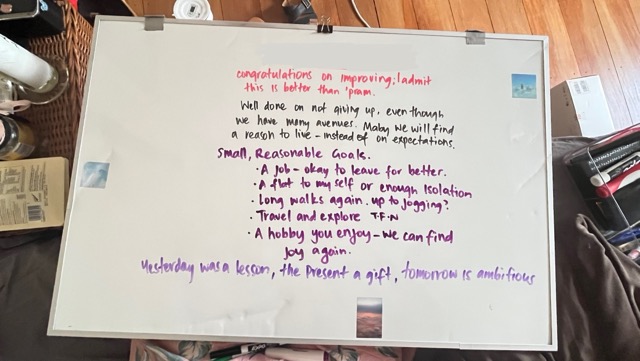 congratulations on improving; I admit
this is better than 'pram.
Well done on not giving up, even though
we have many avenues. Maby we will find
a reason to live - instead of on expectations.
Small, Reasonable Goals.
· A job - okay to leave for better.
· A flat to my self or enough Isolation
· Long walks again. up to jogging?
· Travel and explore T.F.N
· A hobby you enjoy - we can find
joy again.
Yesterday was a lesson, the present a gift, tomorrow is ambitious